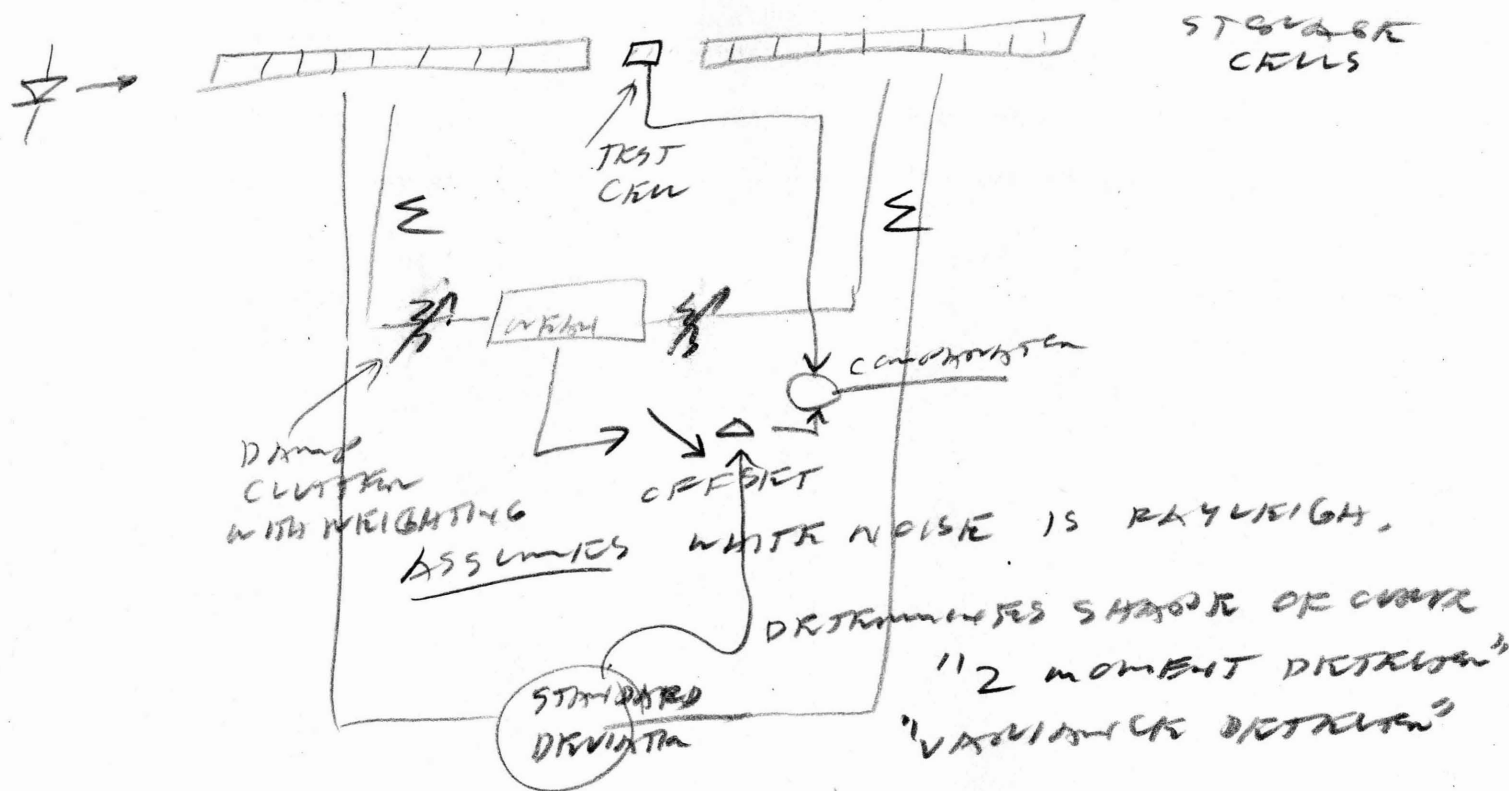 STORAGE
CELLS
TEST
CELL
Σ
Σ
MEAN
COMPARATOR
DAMP
CLUTTER
WITH WEIGHTING
OFFSET
ASSUMES WHITE NOISE IS RAYLEIGH.
DETERMINES SHAPE OF CURVE
"2 MOMENT DETECTOR"
"VARIANCE DETECTOR"
STANDARD
DEVIATION